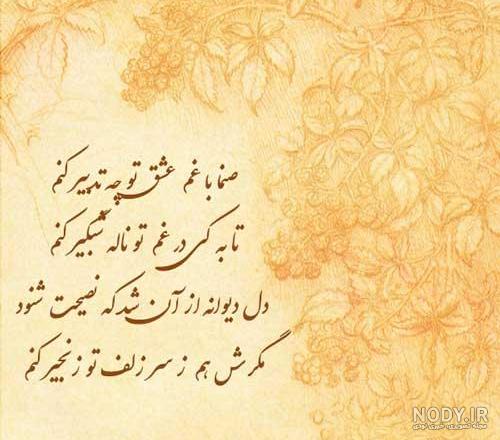 صنما با غم عشق تو چه تدبیر کنم
تا به کی در غم تو ناله شبگیر کنم
دل دیوانه از آن شد که نصیحت شنود
مگرش هم ز سر زلف تو زنجیر کنم
NODY.IR
مجله تصویری، خبری نودی